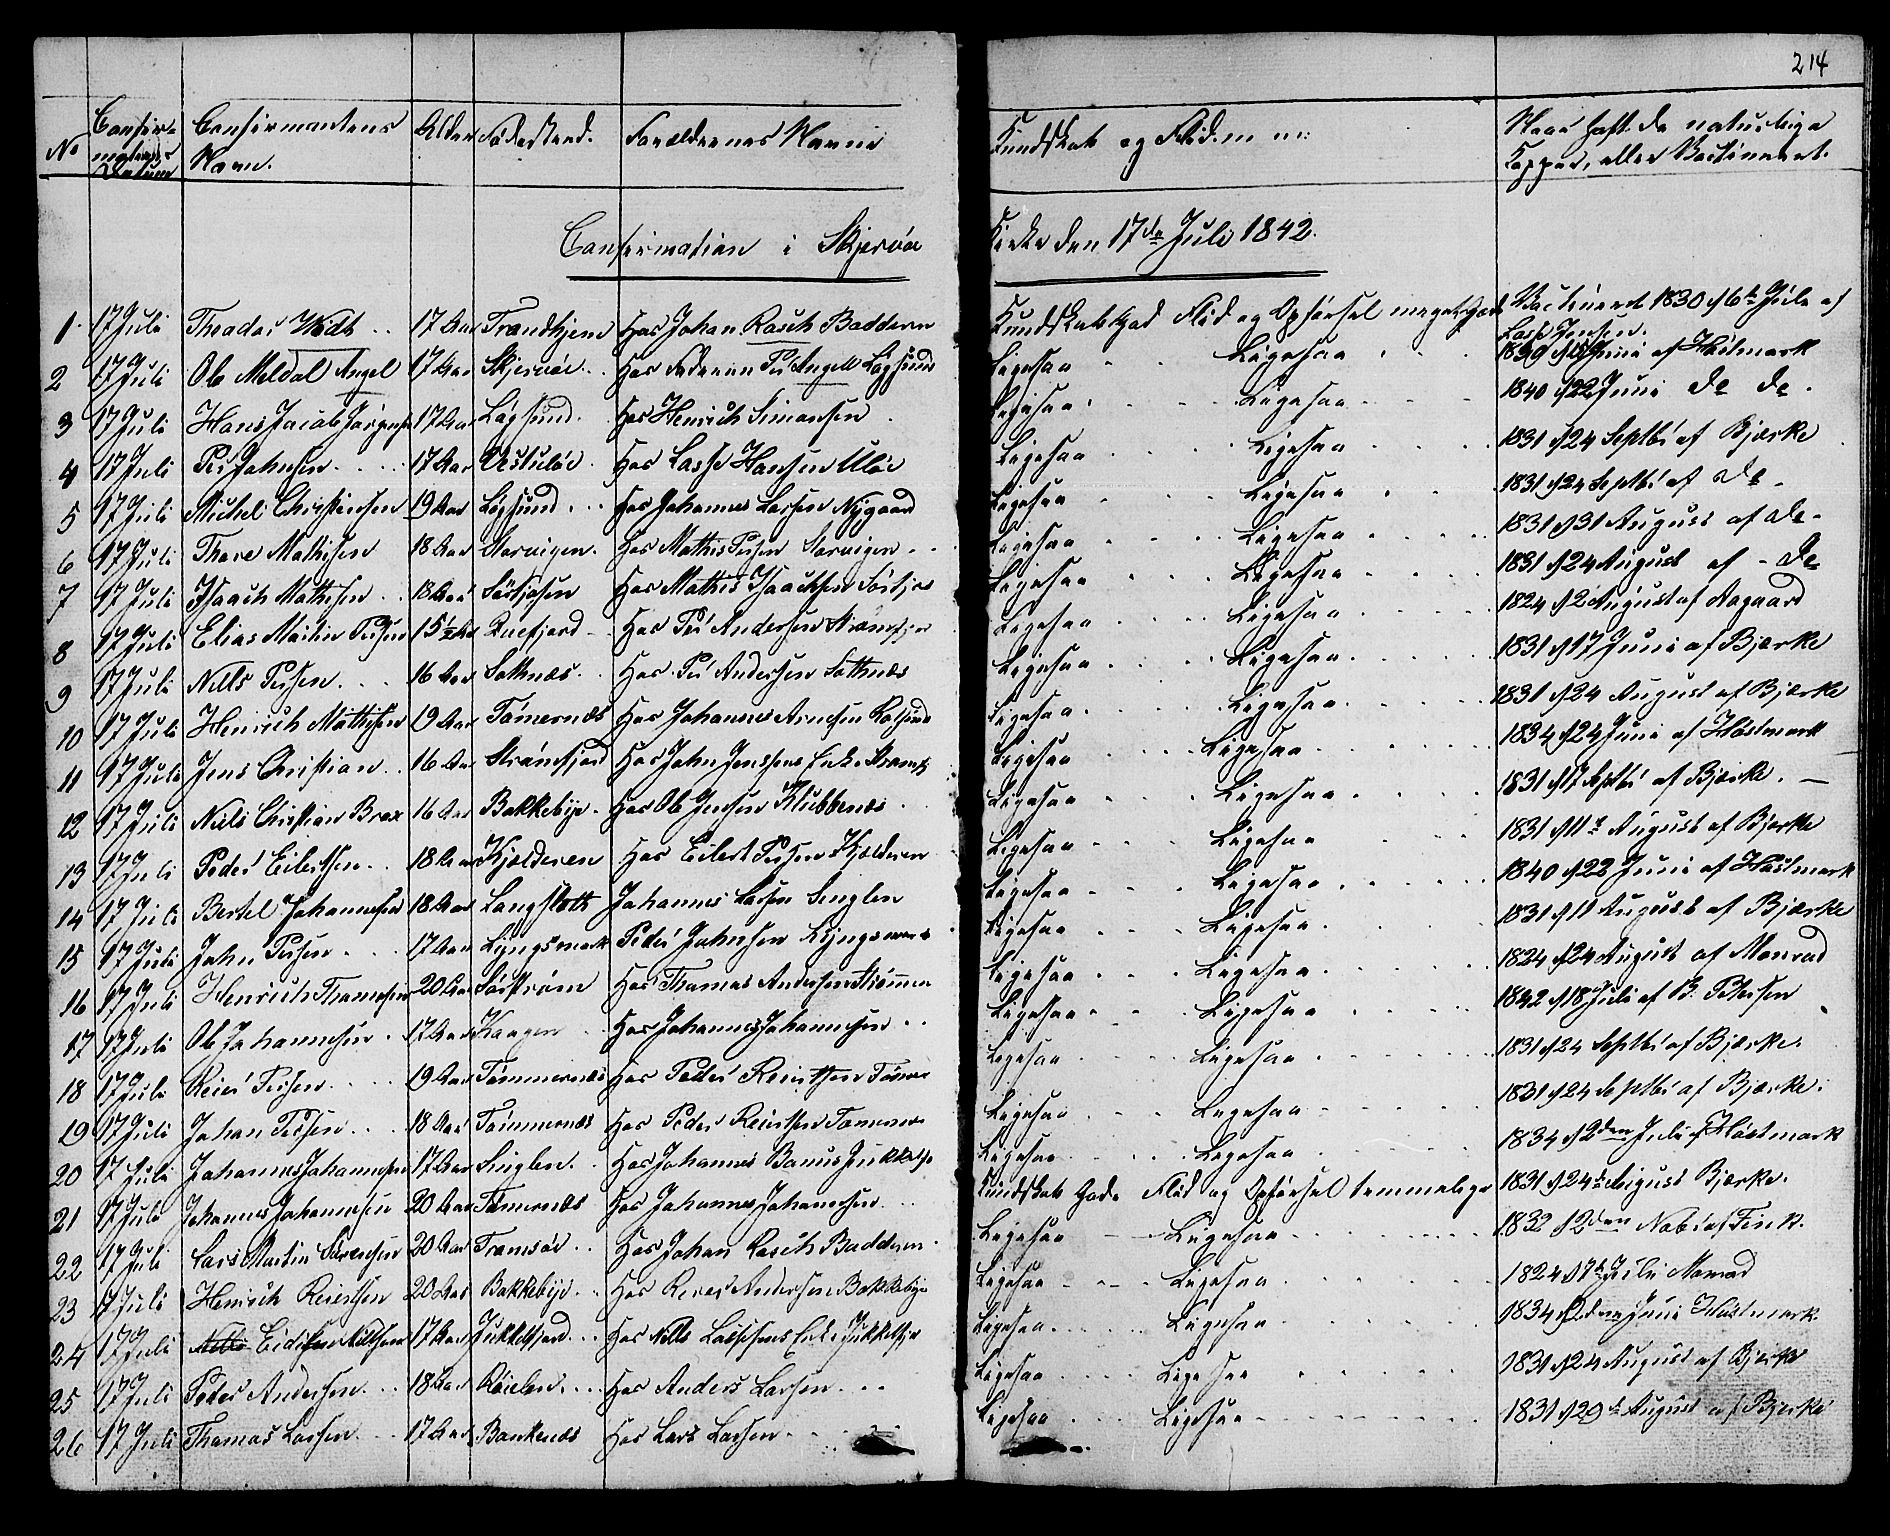 214
No Confirmations Datum Confirmantens Navn. Alder Fødested. Forældrenes Navne Kundskab og Flid. m. m: Naar haft de naturlige Kopper, eller Vaccineret.
Confirmation i Skjervøe Kirke den 17de Juli 1842.
1. 17 Juli Theodor Widt 17 Aar Trondhjem Hos Johan Rasch Badderen Kundskab god Flid og Opførsel meget gode Vaccineret 1830 d 6te Juli af Lars Jensen.
2 17 Juli Ole Meldal Angel 17 Aar Skjervøe Hos Faderen Angell Løgsund Ligesaa Ligesaa Juni af Høstmark
3 17 Juli Hans Jacob Jørgensen 17 Aar Løgsund. Hos Henrich Simonsen Ligesaa Ligesaa 1840 d 22 Juni do do.
4 17 Juli Per Johnsen 17 Aar Hos Lasse Hansen Uløe Ligesaa Ligesaa 1831 d 24 Septbr af Bjerke
5 17 Juli Michel Christensen 19 Aar Løgsund Hos Johannes Larsen Nygaard Ligesaa Ligesaa 1831 d 24 Septbr af do
6 17 Juli Thore Mathisen 18 Aar Storvigen. Hos Mathis Persen Storvigen Ligesaa Ligesaa 1831 d 31 August af do
7 17 Juli Isaach Mathisen 18 Aar Hos Mathis Isaachsen Ligesaa Ligesaa 1831 d 24 August af do
8 17 Juli Elias Martin Persen 15½ Aar Qvefjord Hos Per Andersen Ligesaa Ligesaa 1824 d 2 August af Aagaard
9 17 Juli Nills Persen. 16 Aar Sotnæs. Hos Per Andersen Sottnæs Ligesaa Ligesaa 1831 d 17 Juni af Bjærke
10 17 Juli Henrich Mathisen 19 Aar Tømernæs Hos Johannes Arnesen Ligesaa Ligesaa 1831 d 24 August af Bjærke
11 17 Juli Jens Christian 16 Aar Strømfjord Hos John Jensens Enke Ligesaa Ligesaa 1834 d 24 Juni af Høstmark
12 17 Juli Niels Christian Brox 16 Aar Bakkebye. Hos Ole Jensen Klubbenæs Ligesaa Ligesaa 1831 d 17 Septbr af Bjerke.
13 17 Juli Peder Eilertsen 18 Aar Kjælderen Hos Eilert Persen Kjelderen Ligesaa Ligesaa 1831 d 11 August af Bjerke
14 17 Juli Bertel Johannesen 18 Aar Langslett Johannes Larsen Singlen Ligesaa Ligesaa 1840 d 22 Juni af Høstmark
15 17 Juli John Persen 17 Aar Lyngsmark Peder Johnsen Ligesaa Ligesaa 1831 d 11 August af Bjærke
16 17 Juli Henrich Thomesen 20 Aar Sørstrøm Hos Thomas Andersen Ligesaa Ligesaa 1824 d 24 August af Monrad
17 17 Juli Ole Johannesen 17 Aar Kaagen Hos Johannes Johannesen Ligesaa Ligesaa 1842 d 18 Juli af B. Petersen
18 17 Juli Reier Persen 19 Aar Tømmernæs Hos Peder Reiersen Ligesaa Ligesaa 1831 d 24 Septbr af Bjærke.
19 17 Juli Johan Persen 18 Aar Tømmernæs Hos Peder Reiersen Ligesaa Ligesaa 1831 d 24 Septbr af Bjærke.
20 17 Juli Johannes Johannesen 17 Aar Singlen. Hos Johannes Ligesaa Ligesaa 1834 d 2den Juli af Høstmark
21 17 Juli Johannes Johannesen 20 Aar Tømernæs Hos Johannes Johannesen Kundskab Gode Flid og Opførsel temmelige 1831 d 24 August Bjerke.
22 17 Juli Lars Martin Sørensen 20 Aar Tromsøe Hos Johan Rasch Badderen Ligesaa Ligesaa 1832 d 2den Novbr af Finck.
23 17 Juli Henrich Reiersen 20 Aar Bakkebye. Hos Reier Andersen Bakkebye Ligesaa Ligesaa 1824 d 7 Juli Monrad
24 17 Juli Nillsen 17 Aar Jukkelfjord Hos Nills Enke Ligesaa Ligesaa 1834 d 2den Juni Høstmark.
25 17 Juli Peder Andersen 18 Aar Røielen Hos Anders Larsen Ligesaa Ligesaa 1831 d 24 August af Bjerke
26 17 Juli Thomas Larsen 17 Aar Bankenæs Hos Lars Larsen Ligesaa Ligesaa 1831 d 29 August af Bjerke